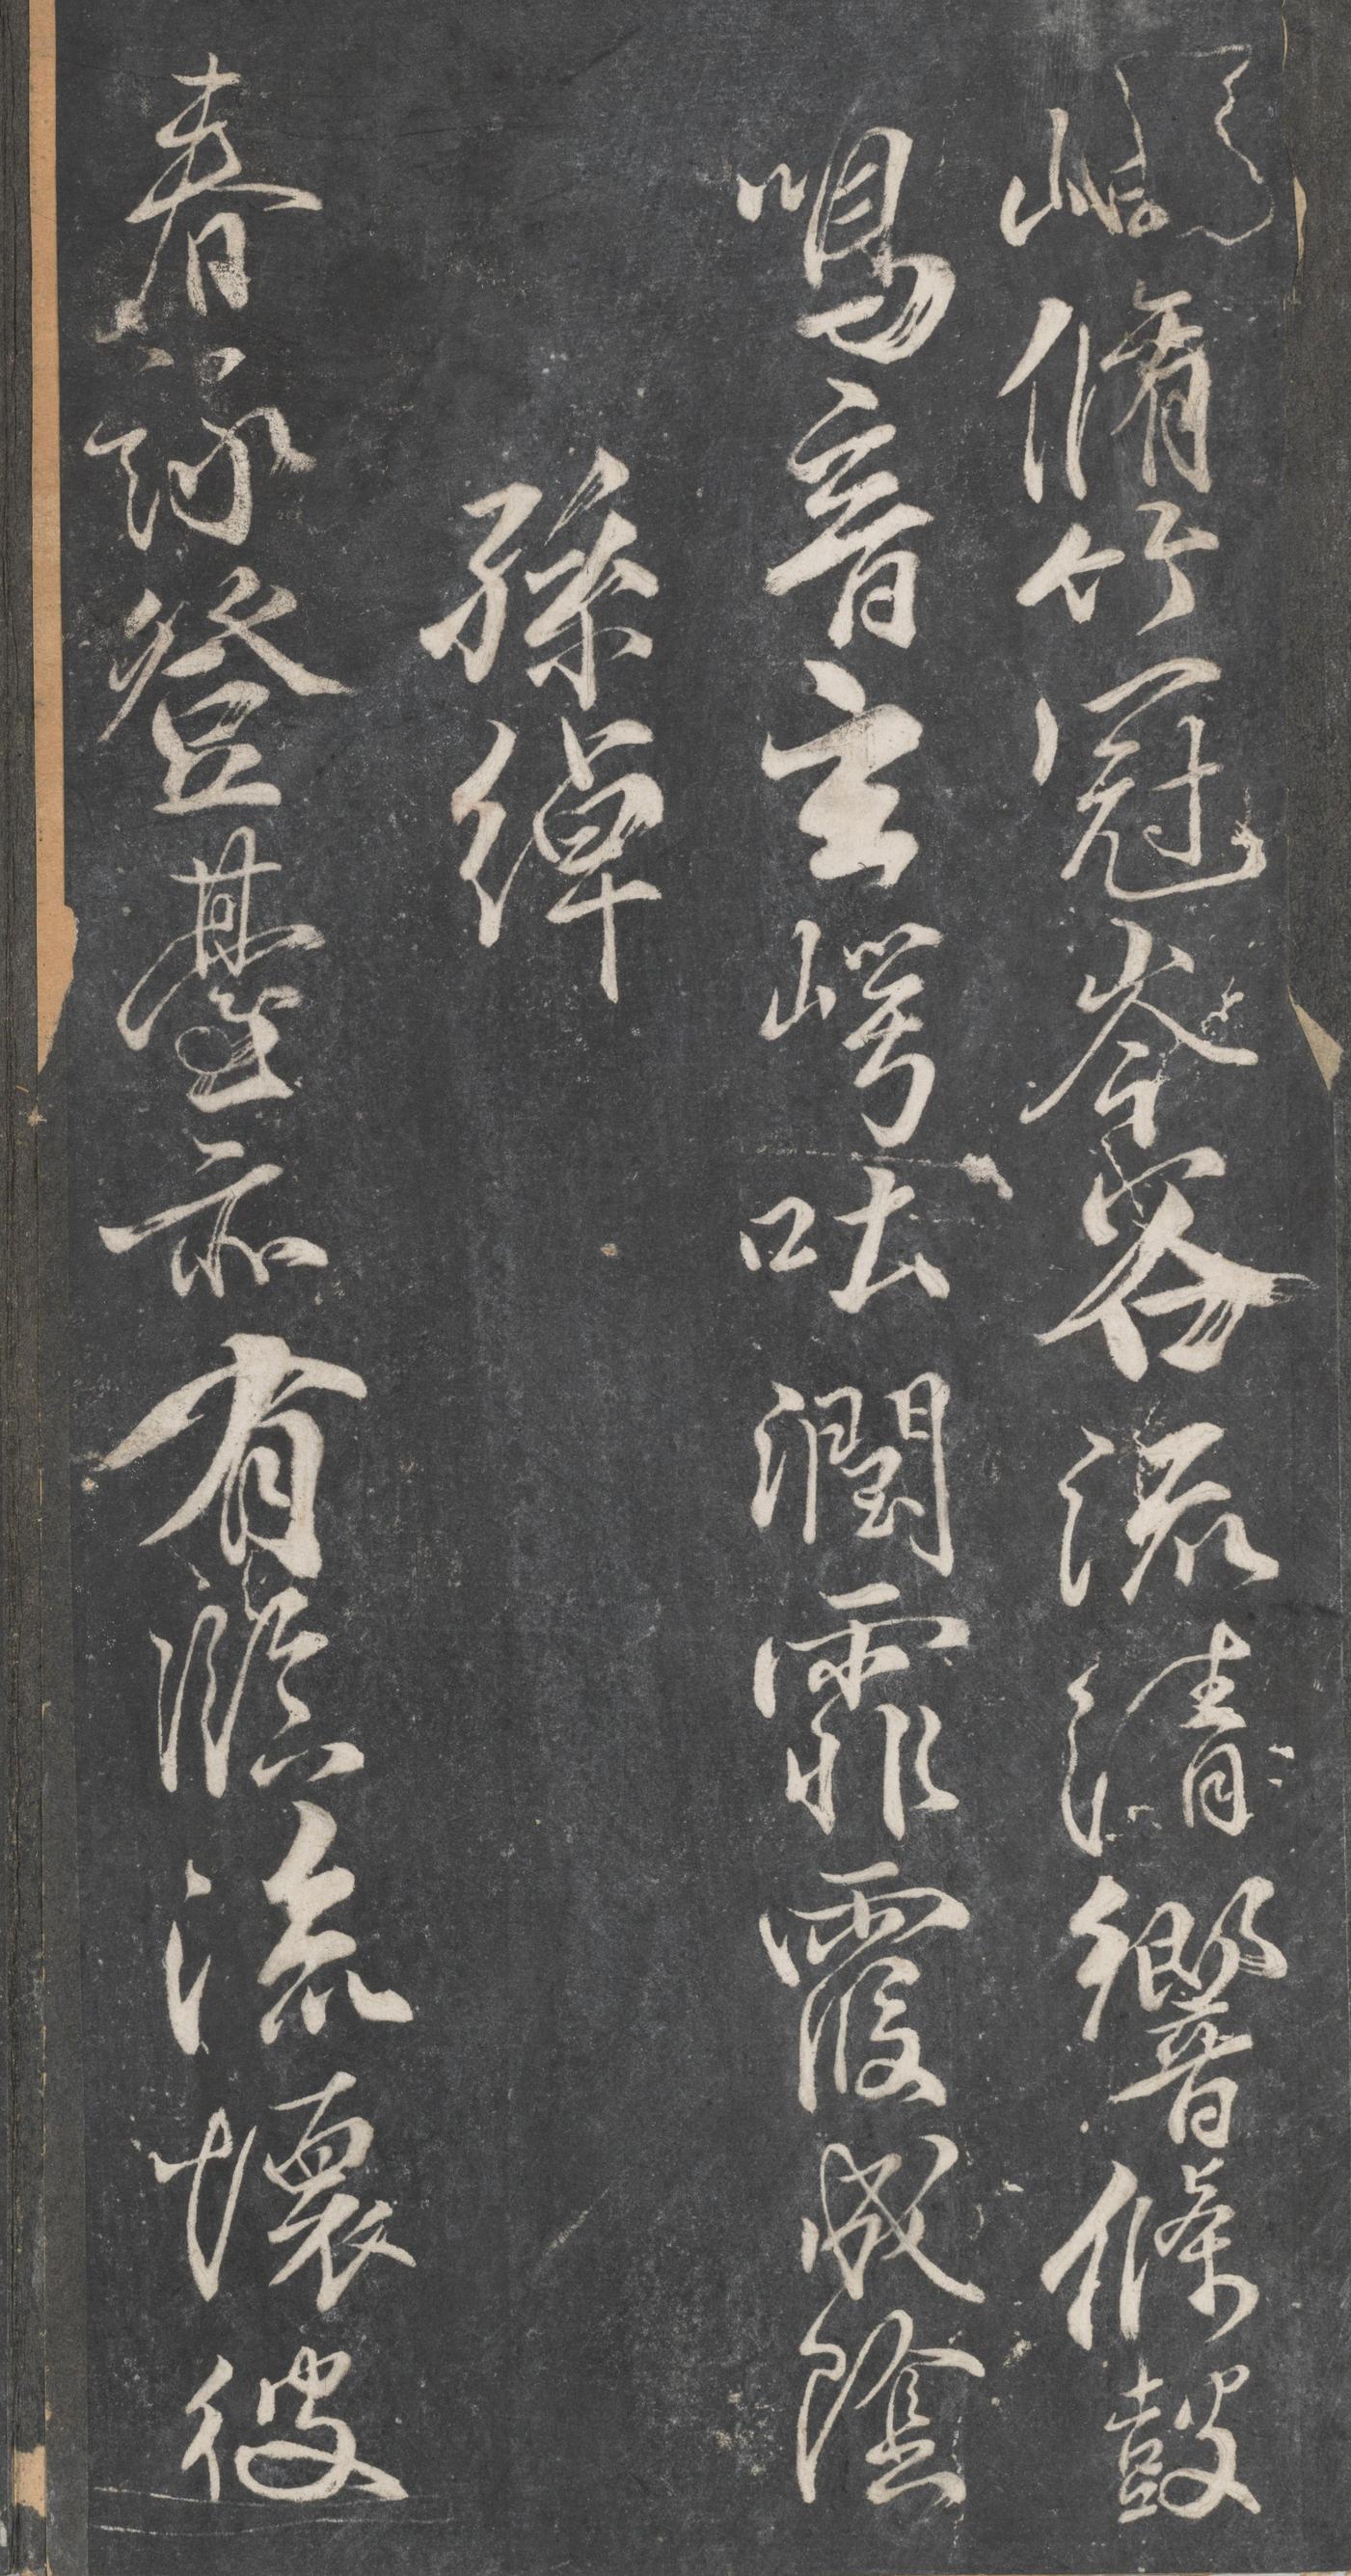 巔脩竹冠岑谷流清響條鼓
鳴音玄崿吐潤霏霧成陰
孫綽
春詠登臺亦有臨流懷彼